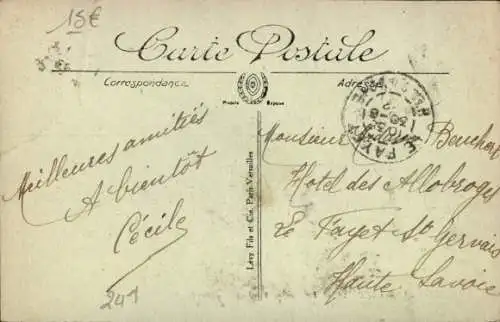 15€
Carte Postale
Correspondance
Adresse
LE FAYET
Meilleures amitiés
A bientôt
Cécile
241
Lévy Fils et Cie, Paris-Versailles
Monsieur
Hotel des Allobroges
Le Fayet St Gervais
Haute Savoie